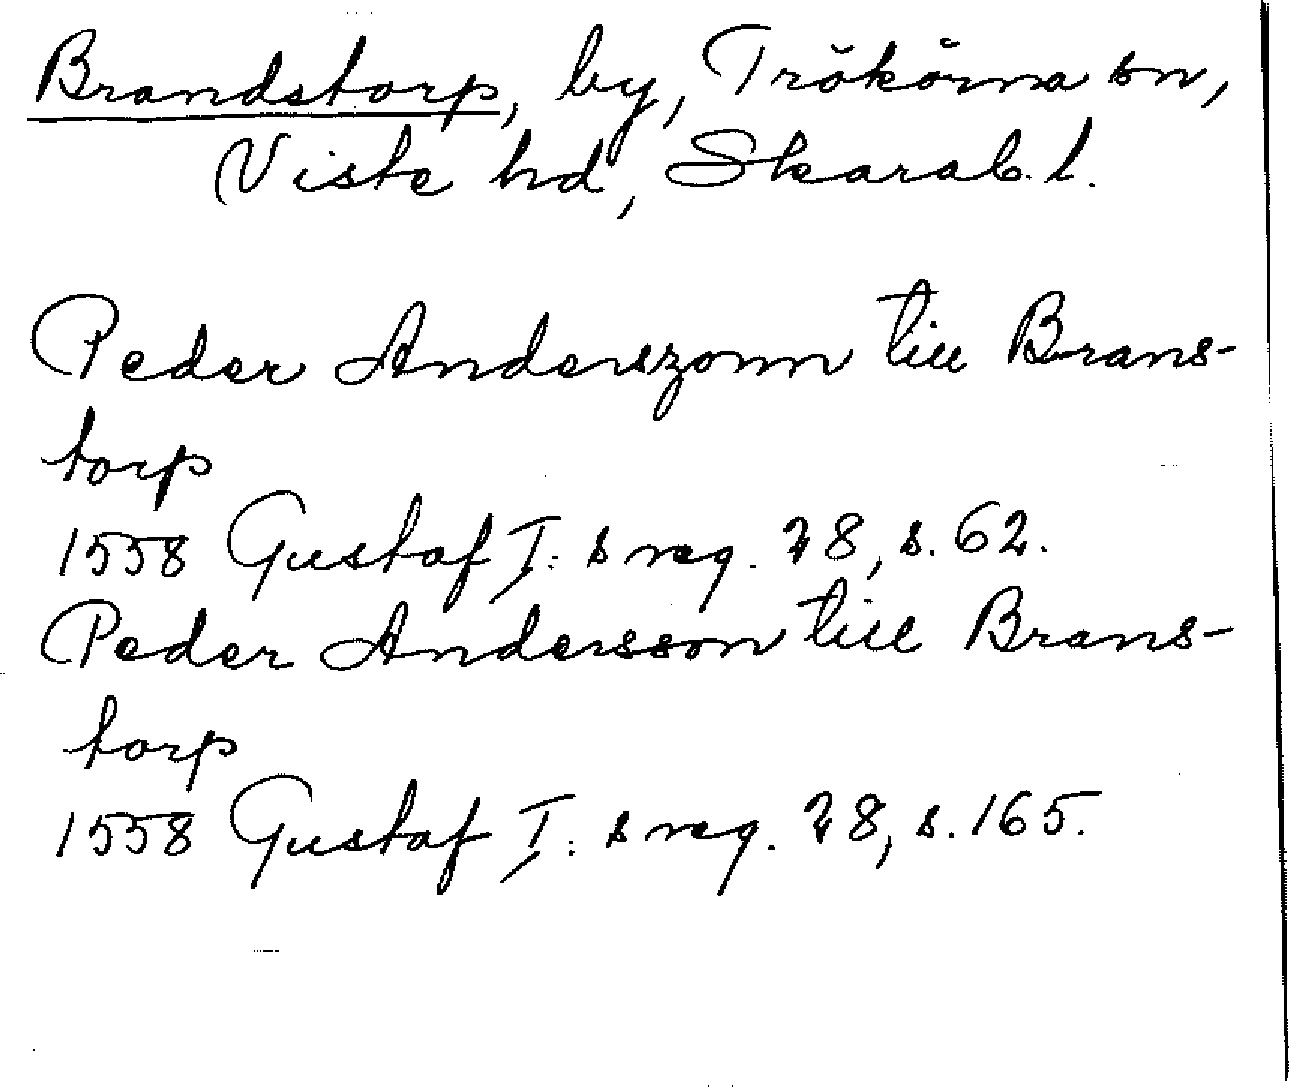 Brandstorp, by, Trökörna sn,
Viste hd, Skarab. l.
Peder Anderszonn till Brans-
torp
1558 Gustaf I: s reg. 28, s. 62.
Peder Andersson till Brans-
torp
1558 Gustaf I: s reg. 28, s. 165.